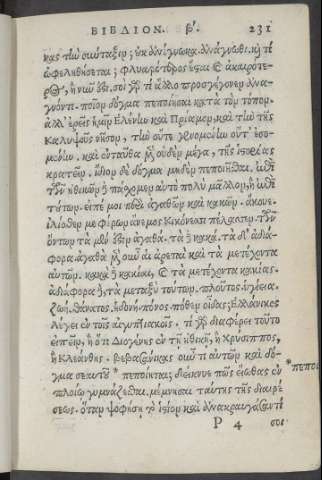 ΒΙΒΛΙΟΝ. β'. 231
κας τὴν σωύταξιν; οὐκ ἀνέγνωκα. ἀνάγνωθι. καὶ τί
ὠφεληθήσεται; φλυαρότερος ἔσαι καὶ ἀκαιρότε-
ρος, ἢ νῦν εἶ. σοὶ γὰρ τί ἄλλο προσγέγονεν ἀνα-
γνόντι. ποῖον δόγμα πεποίησαι κατὰ τὸν τόπον.
ἀλλ' ἐρεῖς ἡμῖν Ελένην καὶ Πρίαμον, καὶ τὴν τῆς
Καλυψοῦς νῆσον, τὴν οὔτε γενομένην οὔτ' ἐσο-
μένην. καὶ ἐνταῦθα μὲν οὐδὲν μέγα, τῆς ἱστορίας
κρατεῖν. ἴδιον δὲ δόγμα μηδὲν πεποιῆσθαι.
τῶν ἠθικῶν πάσχομεν αὐτὸ πολὺ μᾶλλον, ἢ
τούτων. εἰπέ μοι περὶ ἀγαθῶν καὶ κακῶν. ἄκουε.
ἰλιόθεν με φέρων ἄνεμος Κικόνεσσι πέλασσεν. τῶν
ὄντων τὰ μὲν ἐστιν ἀγαθά. τὰ δὲ κακά. τὰ δ' ἀδιά-
φορα. ἀγαθὰ μὲν οὖν αἱ ἀρεταὶ καὶ τὰ μετέχοντα
αὐτῶν. κακὰ δὲ κακίαι, καὶ τὰ μετέχοντα κακίας.
ἀδιάφορα δὲ, τὰ μεταξὺ τούτων. πλοῦτος. ὑγίεια.
ζωή. θάνατος. ἡδονή. πόνος. πόθεν οἶδας; Ελλάνικος
λέγει ἐν τοῖς αἰγυπτιακοῖς. τί γὰρ διαφέρει τοῦτο
εἰπεῖν, ἢ ὅτι Διογένης ἐν τῇ ἠθικῇ, ἢ Χρύσιππος,
ἢ Κλεάνθης. βεβασάνικας οὖν τι αὐτῶν καὶ δό-
γμα σεαυτοῦ * πεποίηται; δείκνυε πῶς εἴωθας ἐν * πεποι
πλοίῳ γυμνάζεσθαι. μέμνησαι ταύτης τῆς διαιρέ-
σεως. ὅταν ψοφήσῃ τὸ ἱστίον καὶ ἀνακραυγάσαντί
P 4 σοι